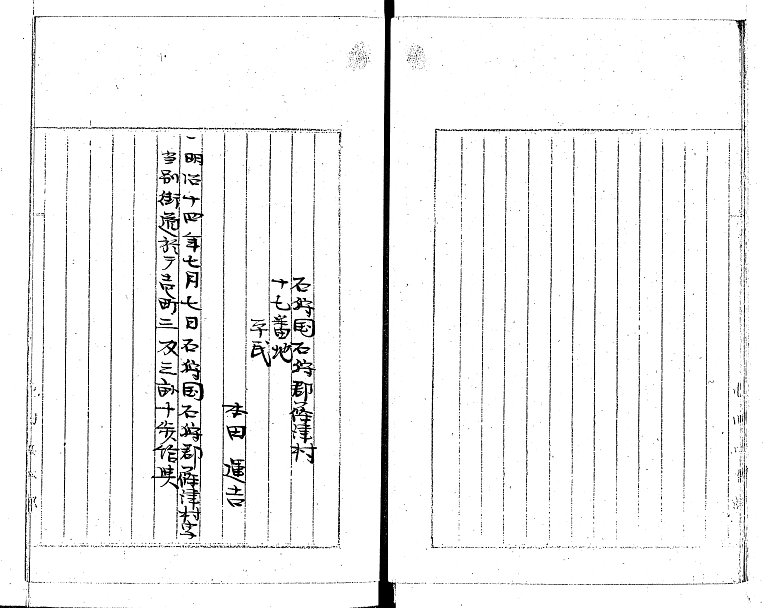 石狩国石狩郡篠津村
十七番地
平民
本田運吉
一明治十四年七月七日石狩国石狩郡篠津村字
当別街道於テ壱町三反三畝十歩